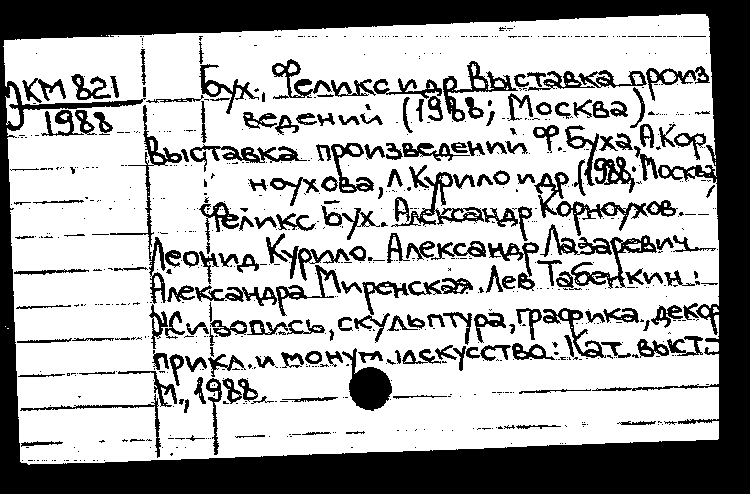 JКМ 821
1988
Бух., Феликс и др Выставка произ
ведений (1988; Москва).
Выставка произведений Ф. Буха, А. Кор
ноухова, Л. Курило и др. (1988; Москва)
Феликс Бух. Александр Корноухов.
Леонид Курило. Александр Лазаревич.
Александра Миренская. Лев Табенкин:
Живопись, скульптура, графика, декор
прикл. и монум. искусство: Кат. выст.-
М., 1988.